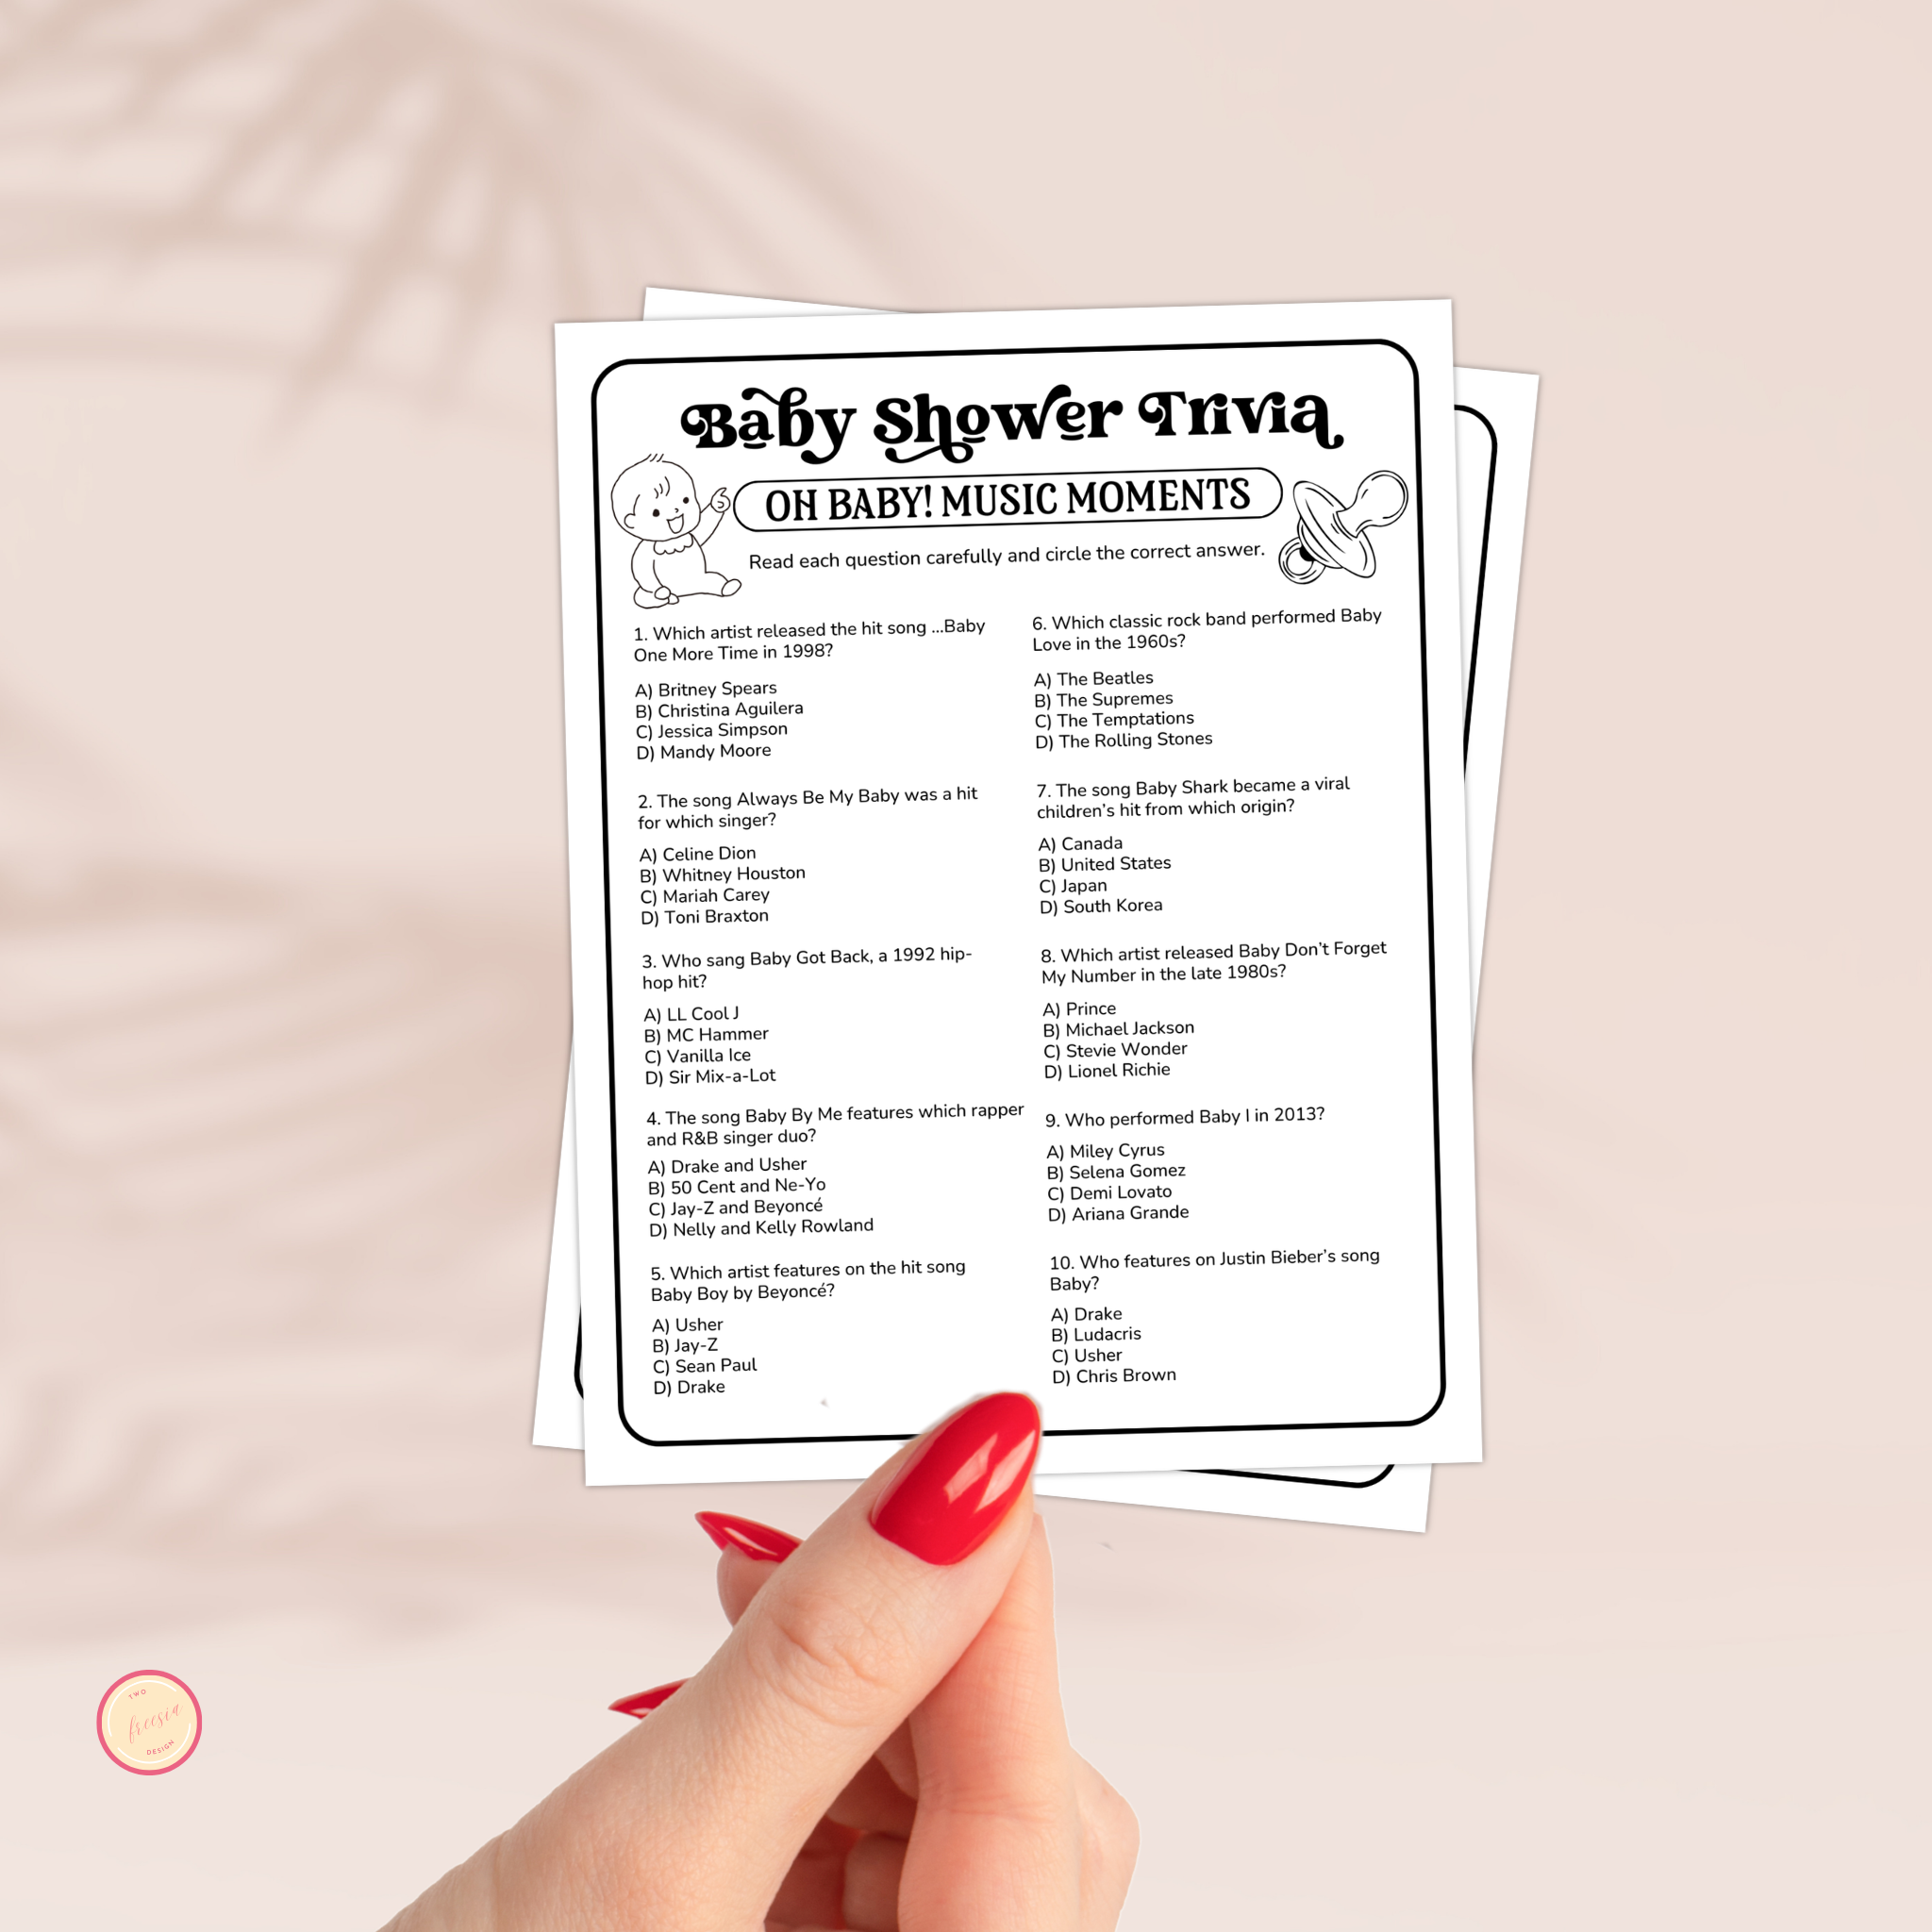 Baby Shower Trivia
OH BABY! MUSIC MOMENTS
Read each question carefully and circle the correct answer.
1. Which artist released the hit song ...Baby
One More Time in 1998?
A) Britney Spears
B) Christina Aguilera
C) Jessica Simpson
D) Mandy Moore
2. The song Always Be My Baby was a hit
for which singer?
A) Celine Dion
B) Whitney Houston
C) Mariah Carey
D) Toni Braxton
3. Who sang Baby Got Back, a 1992 hip-
hop hit?
A) LL Cool J
B) MC Hammer
C) Vanilla Ice
D) Sir Mix-a-Lot
4. The song Baby By Me features which rapper
and R&B singer duo?
A) Drake and Usher
B) 50 Cent and Ne-Yo
C) Jay-Z and Beyoncé
D) Nelly and Kelly Rowland
5. Which artist features on the hit song
Baby Boy by Beyoncé?
A) Usher
B) Jay-Z
C) Sean Paul
D) Drake
6. Which classic rock band performed Baby
Love in the 1960s?
A) The Beatles
B) The Supremes
C) The Temptations
D) The Rolling Stones
7. The song Baby Shark became a viral
children's hit from which origin?
A) Canada
B) United States
C) Japan
D) South Korea
8. Which artist released Baby Don't Forget
My Number in the late 1980s?
A) Prince
B) Michael Jackson
C) Stevie Wonder
D) Lionel Richie
9. Who performed Baby I in 2013?
A) Miley Cyrus
B) Selena Gomez
C) Demi Lovato
D) Ariana Grande
10. Who features on Justin Bieber's song
Baby?
A) Drake
B) Ludacris
C) Usher
D) Chris Brown
TWO
freesia
DESIGN